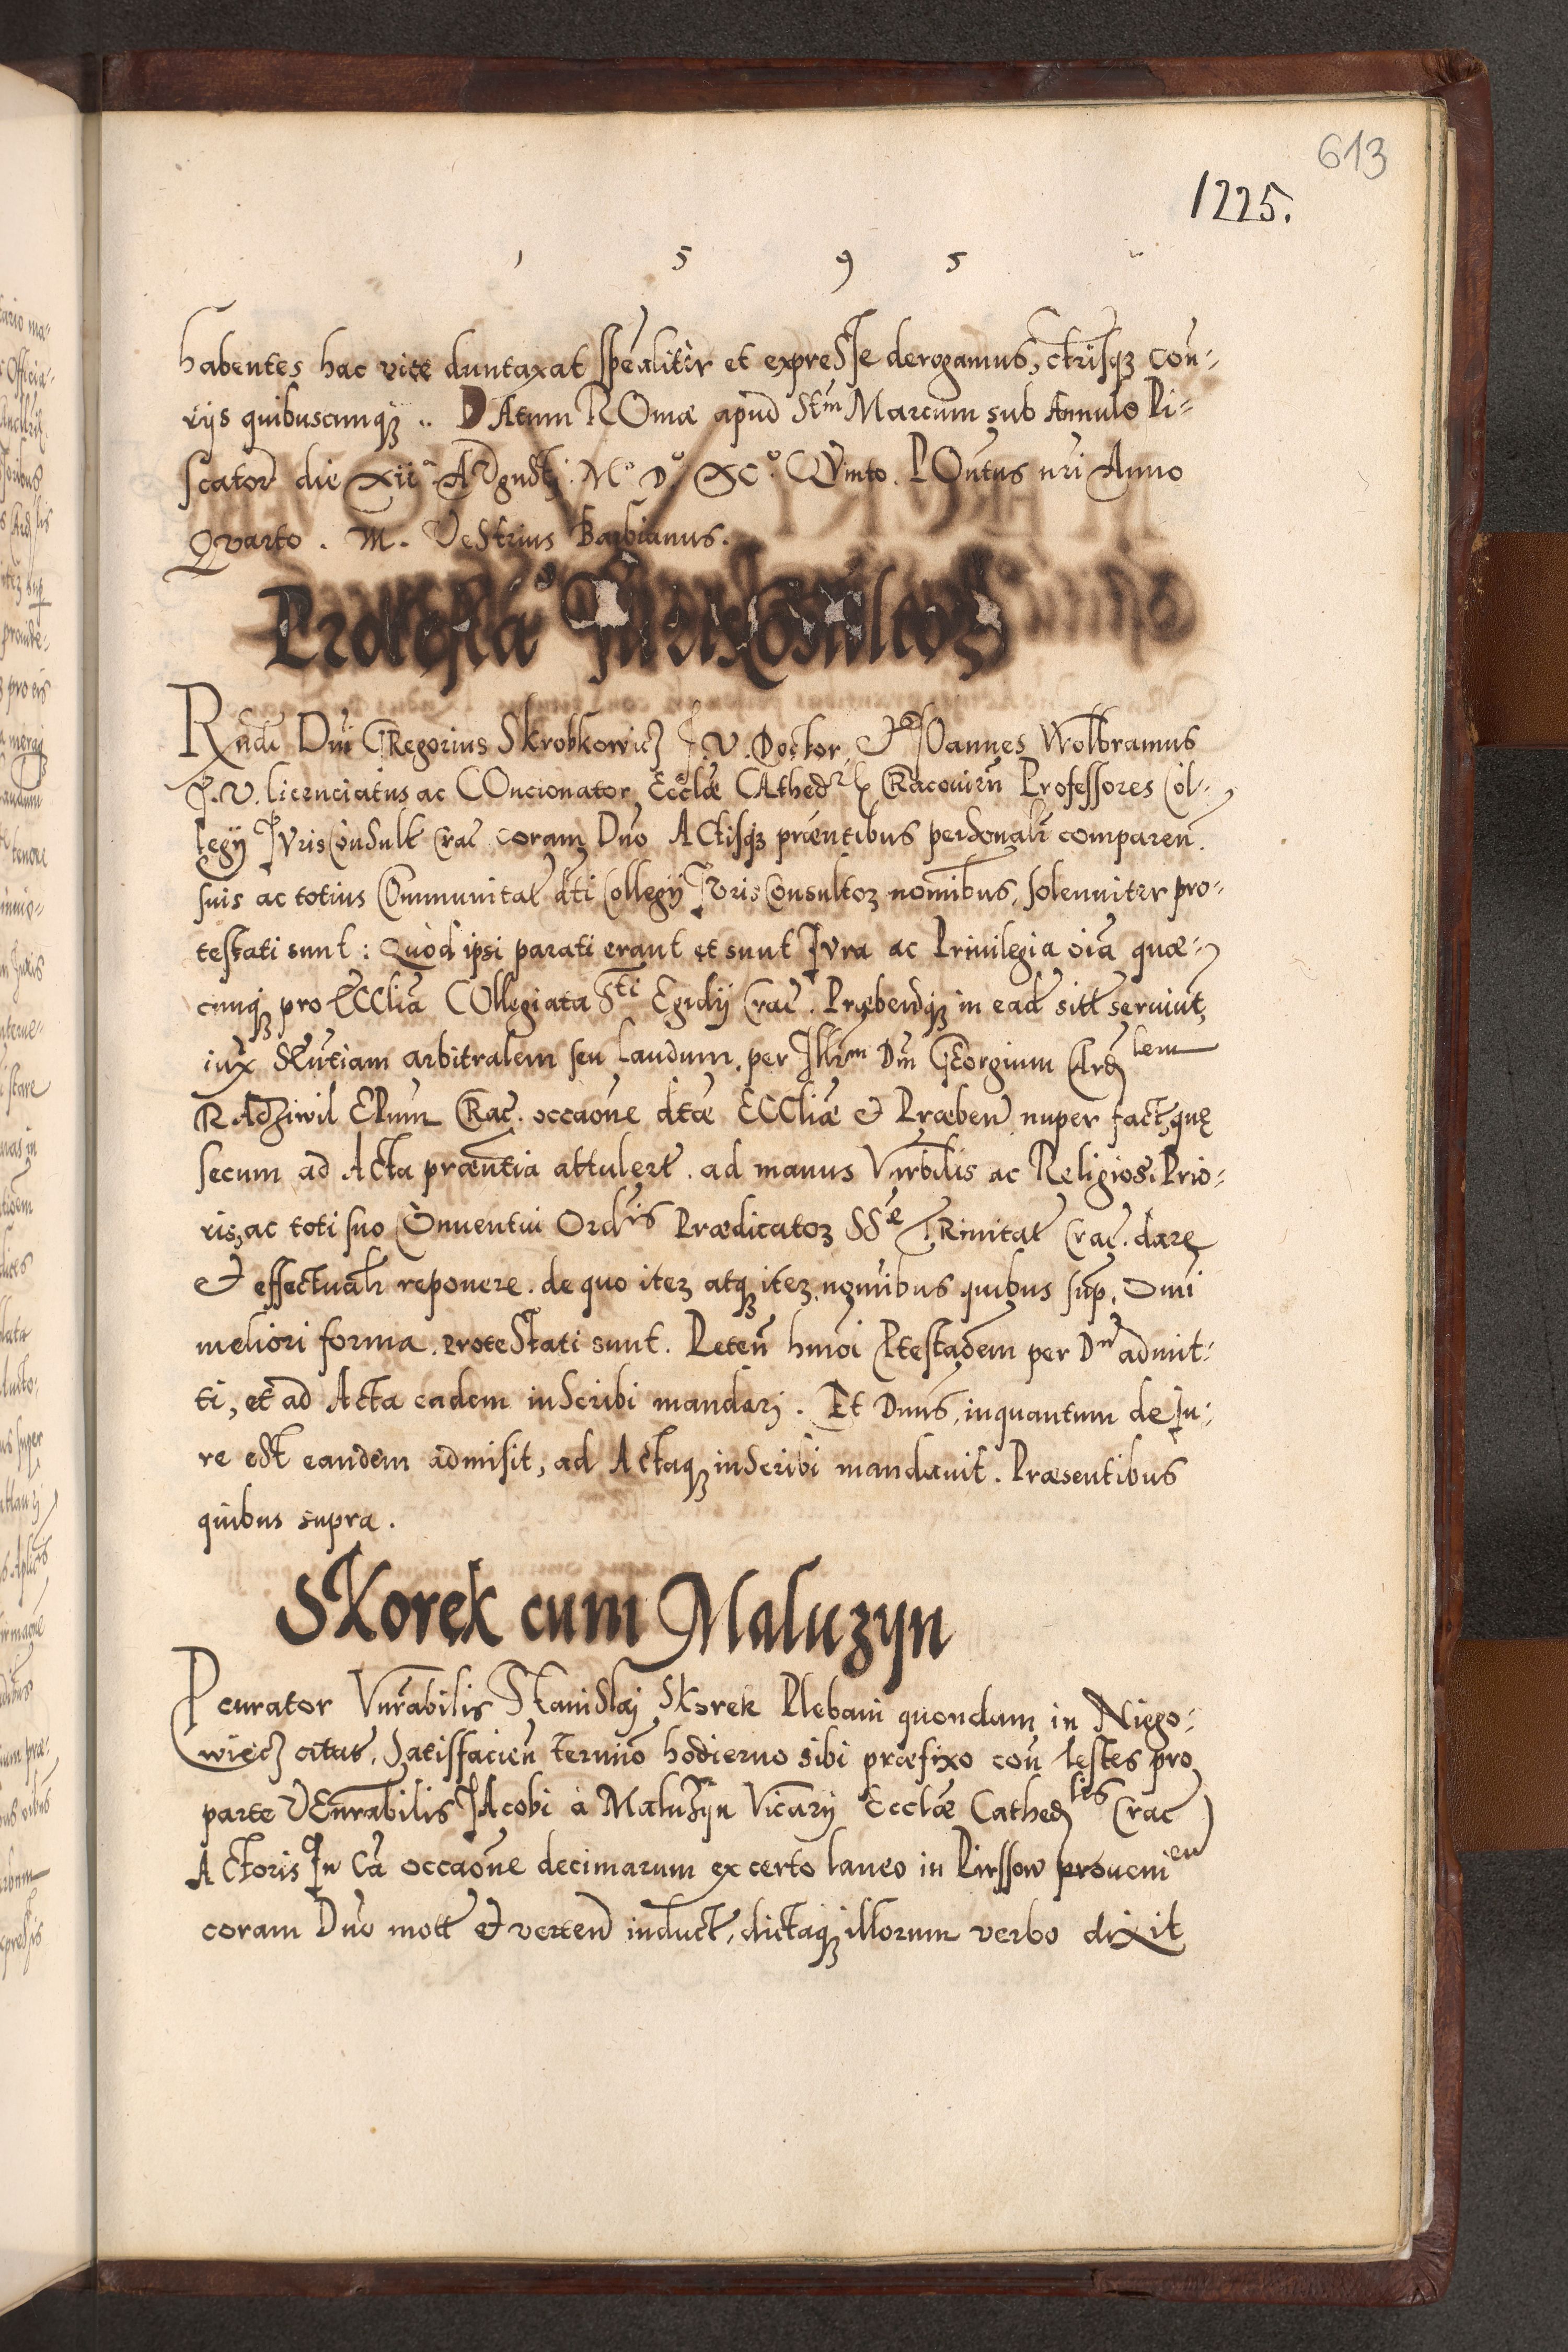 613
1225.
1 5 9 5
habentes hac vice duntaxat spealiter et expresse derogamus, ctrisq3 con-
rijs quibuscunq3 .. DAtum ROmæ apud Stm Marcum sub Annulo Pi-
scator die xiia Augusti. Mo Do XCo QVinto. POntus nri Anno
Qvarto. M. VeStrius Barbianus.
Protesta
Rndi Dni GRegorius Skrobkowicz J.V. Doctor, et JOannes Wolbramus
J.V. licenciatus ac COncionator Ecclæ CAthedrlis Cracouien Professores Col-
legij JVrisConsult Crac coram Dno ACtisq3 præntibus personalr comparen.
suis ac totius Communitat dti Collegij JVrisConsultoz nomibus, solenniter pro-
testati sunt: Quod ipsi parati erant et sunt Jvra ac Priuilegia oia quæ-
cunq3 pro ECClia COllegiata Sti Egidij Crac. Præbendq3 in ead sitt seruiut,
iux Sentiam arbitralem seu laudum, per Illrm Dnm GEorgium Cardlem
RAdziwil EPum Crac. occaone dtæ ECCliæ et Præben nuper fact, quę
secum ad Acta præntia attulert. ad manus Vnrbilis ac Religiosi Prio-
ris, ac toti suo Conuentui Ordis Prædicatoz SSæ TRinitat Crac. dare
et effectualr reponere. de quo itez atq3 itez nomibus quibus sup. Omi
meliori forma. proteStati sunt. Peten hmoi Ptestaoem per Dnm admit-
ti, et ad Acta eadem inscribi mandari. Et Dnus, inquantum de Ju-
re est eandem admisit, ad Actaq3 inscribi mandauit. Præsentibus
quibus supra.
Skorek cum Maluzyn
Pcurator Vnrabilis Stanislaj Skorek Plebani quondam in Niego-
wiecz citat. Satisfacien termino hodierno sibi præfixo con testes pro
parte VEnrabilis JAcobi à Maluzyn Vicarij Ecclæ Cathedlis Crac
ACtoris In Ca occaone decimarum ex certo laneo in Pirssow prouenien
coram Dno mott et verten induct, dictaq3 illorum verbo dixit